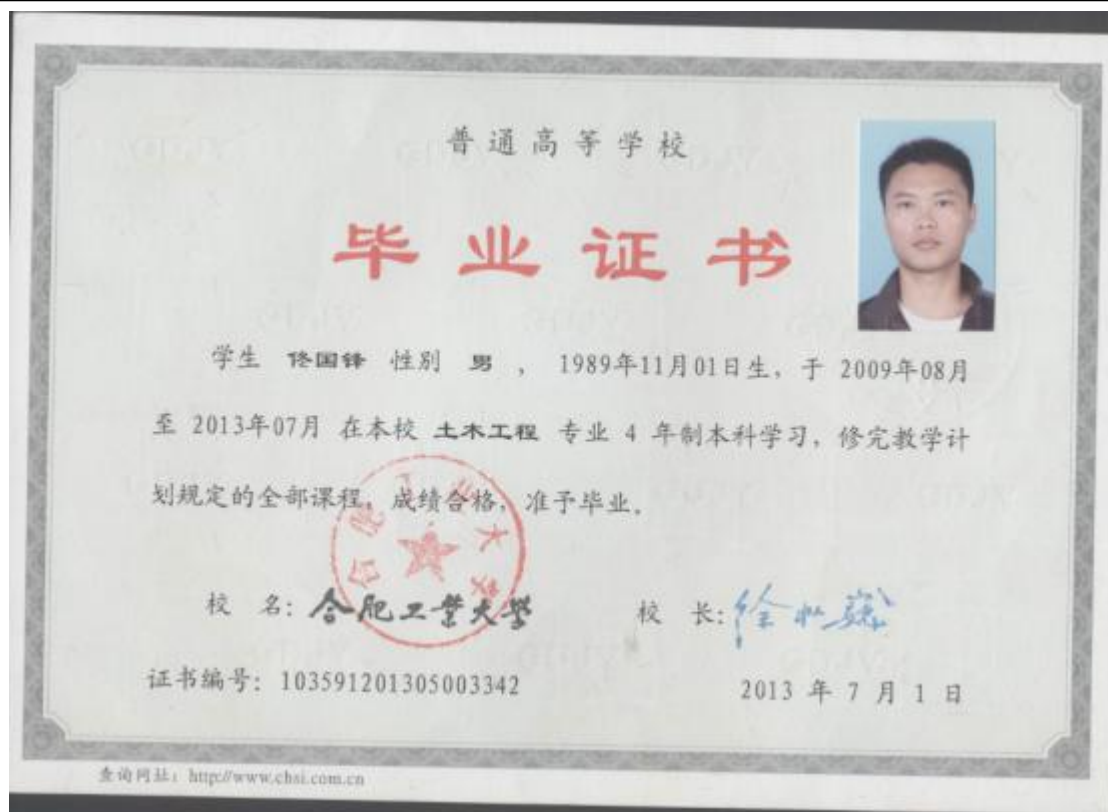 普通高等学校
毕业证书
学生 佟国锋 性别 男 ， 1989年11月01日生，于 2009年08月
至 2013年07月 在本校 土木工程 专业 4 年制本科学习，修完教学计
划规定的全部课程，成绩合格，准予毕业。
合肥工业大学
校 名：合肥工业大学 校 长：徐枞巍
证书编号：103591201305003342 2013 年 7 月 1 日
查询网址：http://www.chsi.com.cn